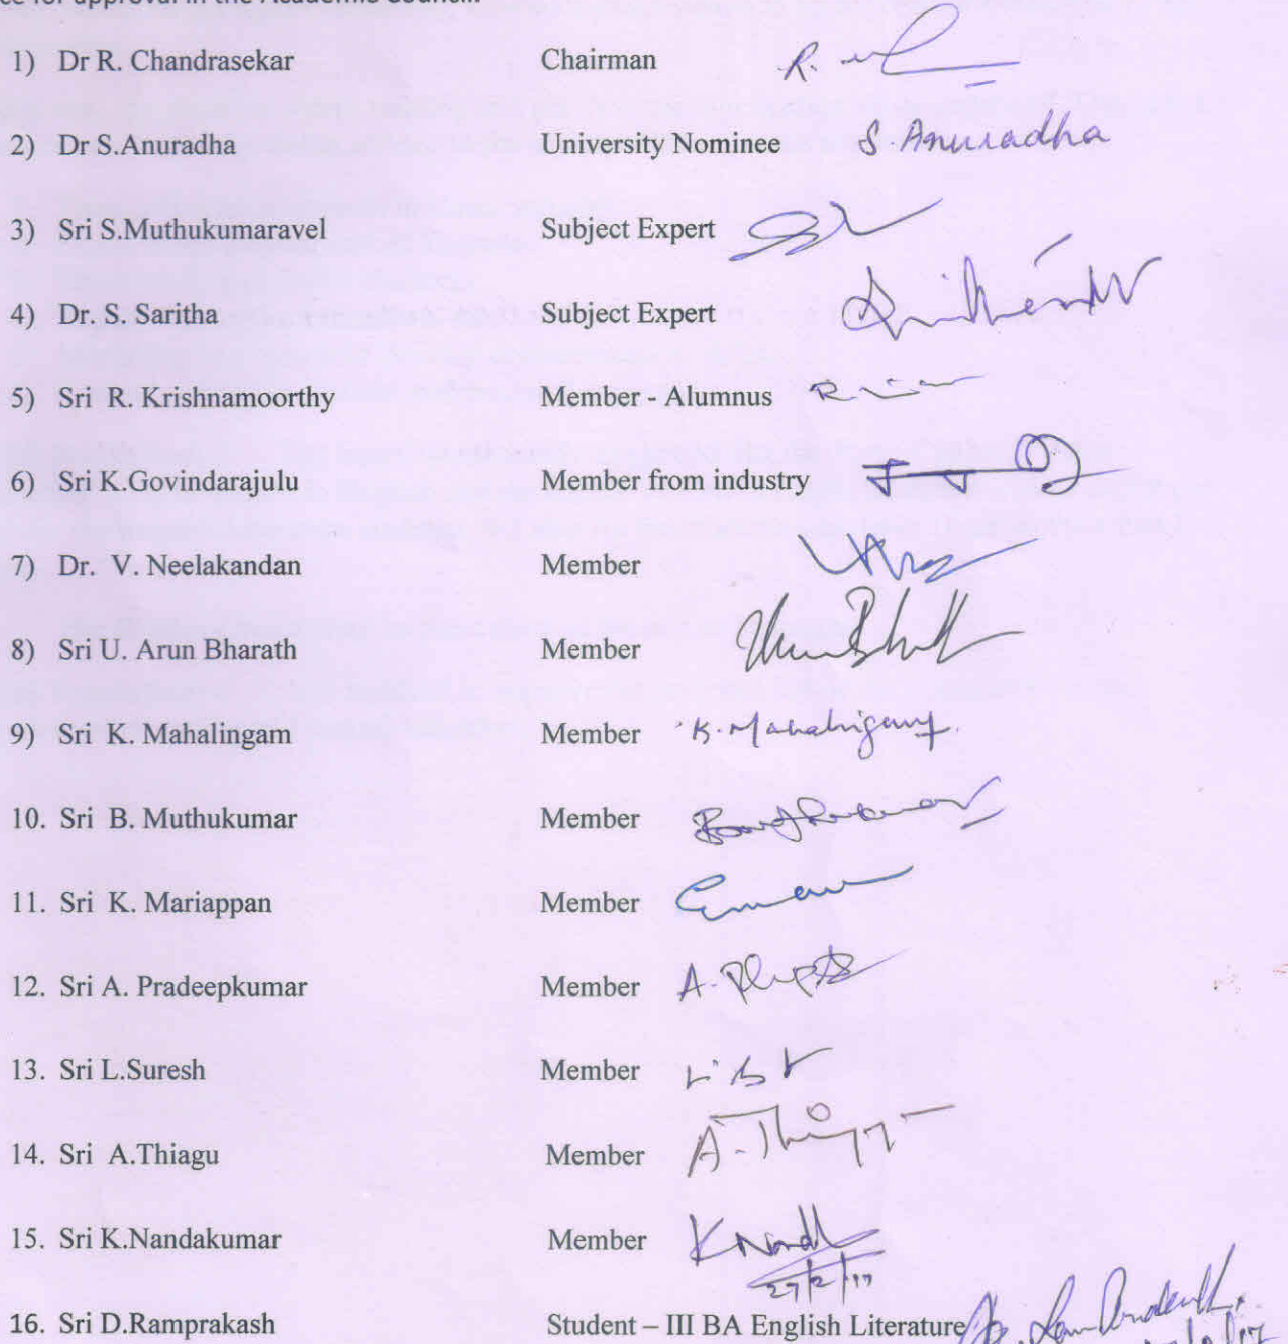 ce for approval in the Academic Council.
1) Dr R. Chandrasekar Chairman R.
2) Dr S.Anuradha University Nominee S Anuradha
3) Sri S.Muthukumaravel Subject Expert
4) Dr. S. Saritha Subject Expert
5) Sri R. Krishnamoorthy Member - Alumnus
6) Sri K.Govindarajulu Member from industry
7) Dr. V. Neelakandan Member
8) Sri U. Arun Bharath Member
9) Sri K. Mahalingam Member K. Mahalingam
10. Sri B. Muthukumar Member
11. Sri K. Mariappan Member
12. Sri A. Pradeepkumar Member A.
13. Sri L.Suresh Member
14. Sri A.Thiagu Member
15. Sri K.Nandakumar Member
27/2/17
16. Sri D.Ramprakash Student – III BA English Literature